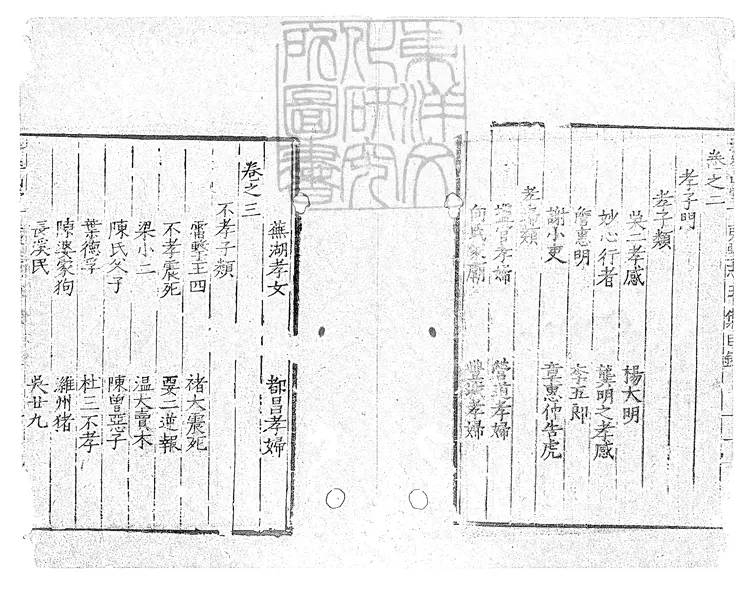 東洋文
化研究
所圖書
卷之二
孝子門
孝子類
吳二孝感 楊大明
妙心行者 龔明之孝感
詹惠明 李五郎
謝小吏 章惠仲告虎
孝婦類
鹽官孝婦 營道孝婦
向氏家廟 孝婦
蕪湖孝女 都昌孝婦
卷之三
不孝子類
雷擊王四 褚大震死
不孝震死 二逆報
梁小二 溫大賣木
陳氏父子 陳曾惡子
葉德孚 杜三不孝
陳婆家狗 濰州猪
長溪民 吳廿九